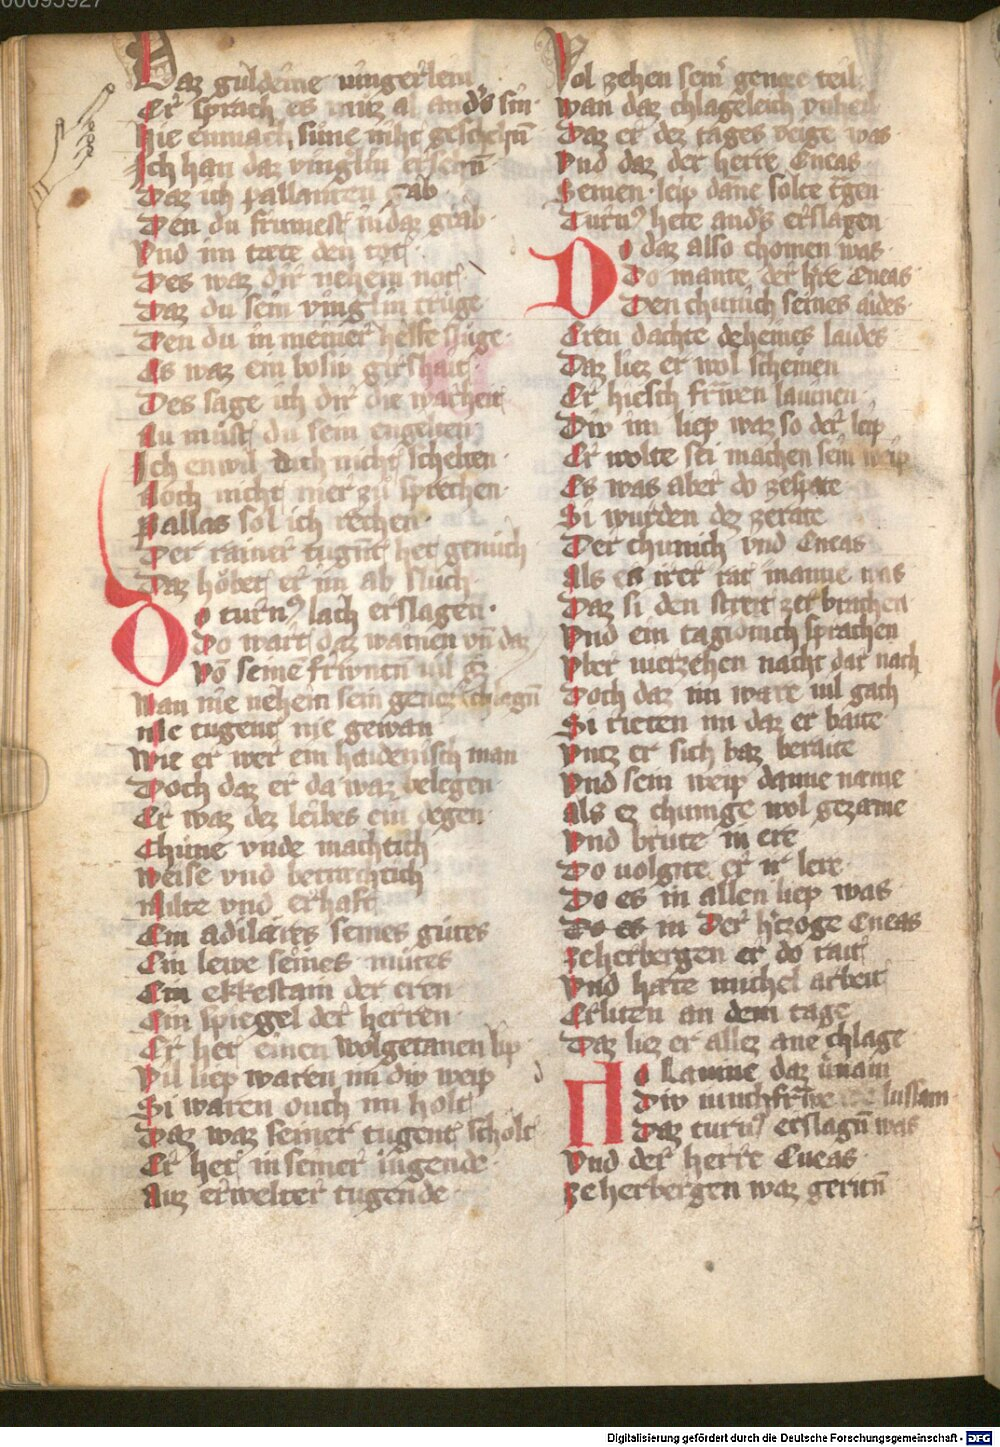 00095927
Daz guldeine vingerlein
Er sprach es muz al anders sin
Hie enmach sune niht geschehn
Ich han daz vinglin ersehn
Daz ich pallanten gab
Den du frumest in daz grab
Vnd im tæte den tot
Des waz dir nehein not
Daz du sein vinglin trüge
Den du in meiner helfe slüge
Es waz ein bosiv girshait
Des sage ich dir die warheit
Nu müst du sein engelten
Ich enwil dich nicht schelten
Noch nicht mer zu sprechen
Pallas sol ich rechen
Der rainer tugnt het genuch
Daz hobet er im ab sluch
Do turnꝰ lach erslagen
Do wart daz wainen vn̄ daz
Vō seine friwntn vil
Wan nie nehein sein genoz chlagn
nie tugent nie gewan
Wie er wer ein haidenisch man
Doch daz er da waz belegen
Er waz dez leibes ein degen
Chüne vnde machtich
Weise vnd betrachtich
Milte vnd erhaft
Ein adilares seines gütes
Ein lewe seines mütes
Ein ekkestain der eren
Ein spiegel der herren
Er het einen wolgetanen lip
Vil liep waren im div weip
Si waren ouch im holt
Daz waz seiner tugent scholt
Er het in seiner iugende
Auz erwelter tugende
Wol zehen seinr genoze teil
Wan daz chlageleich vnheil
Daz er dez tages veige was
Vnd daz der herre Eneas
Seinen leip dane solte trgen
Turnꝰ hete anders erslagen
Do daz also chomen was
Do mante der hre Eneas
Den chunich seines aides
Eren dachte deheines laides
Daz liez er wol scheinen
Er hiesch frwen lauinen
Div im liep waz so der leip
Er wolte sei machen sein weip
Es was aber do zespate
Si wurden dez zerate
Der chunich vnd Eneas
Als es irer rat manne was
Daz si den streit zerbrachen
Vnd ein tagidinch sprachen
Vber vierzehen nacht dar nach
Doch daz im ware vil gach
Si rieten im daz er baite
Vntz er sich baz beraite
Vnd sein weip danne name
Als ez chunige wol gezame
Vnd brute in ere
Do uolgite er ir lere
Do es in allen liep was
Do es in Der hrzoge Eneas
Zeherbergen er do rait
Vnd hate michel arbeit
Erliten an dem tage
Daz liez er allez ane chlage
Do Lauine daz vinam
Div iunchfrwe lussam
Daz turnꝰ erslagn was
Vnd der herre Eneas
Zeherbergen waz geritn
Digitalisierung gefördert durch die Deutsche Forschungsgemeinschaft - DFG